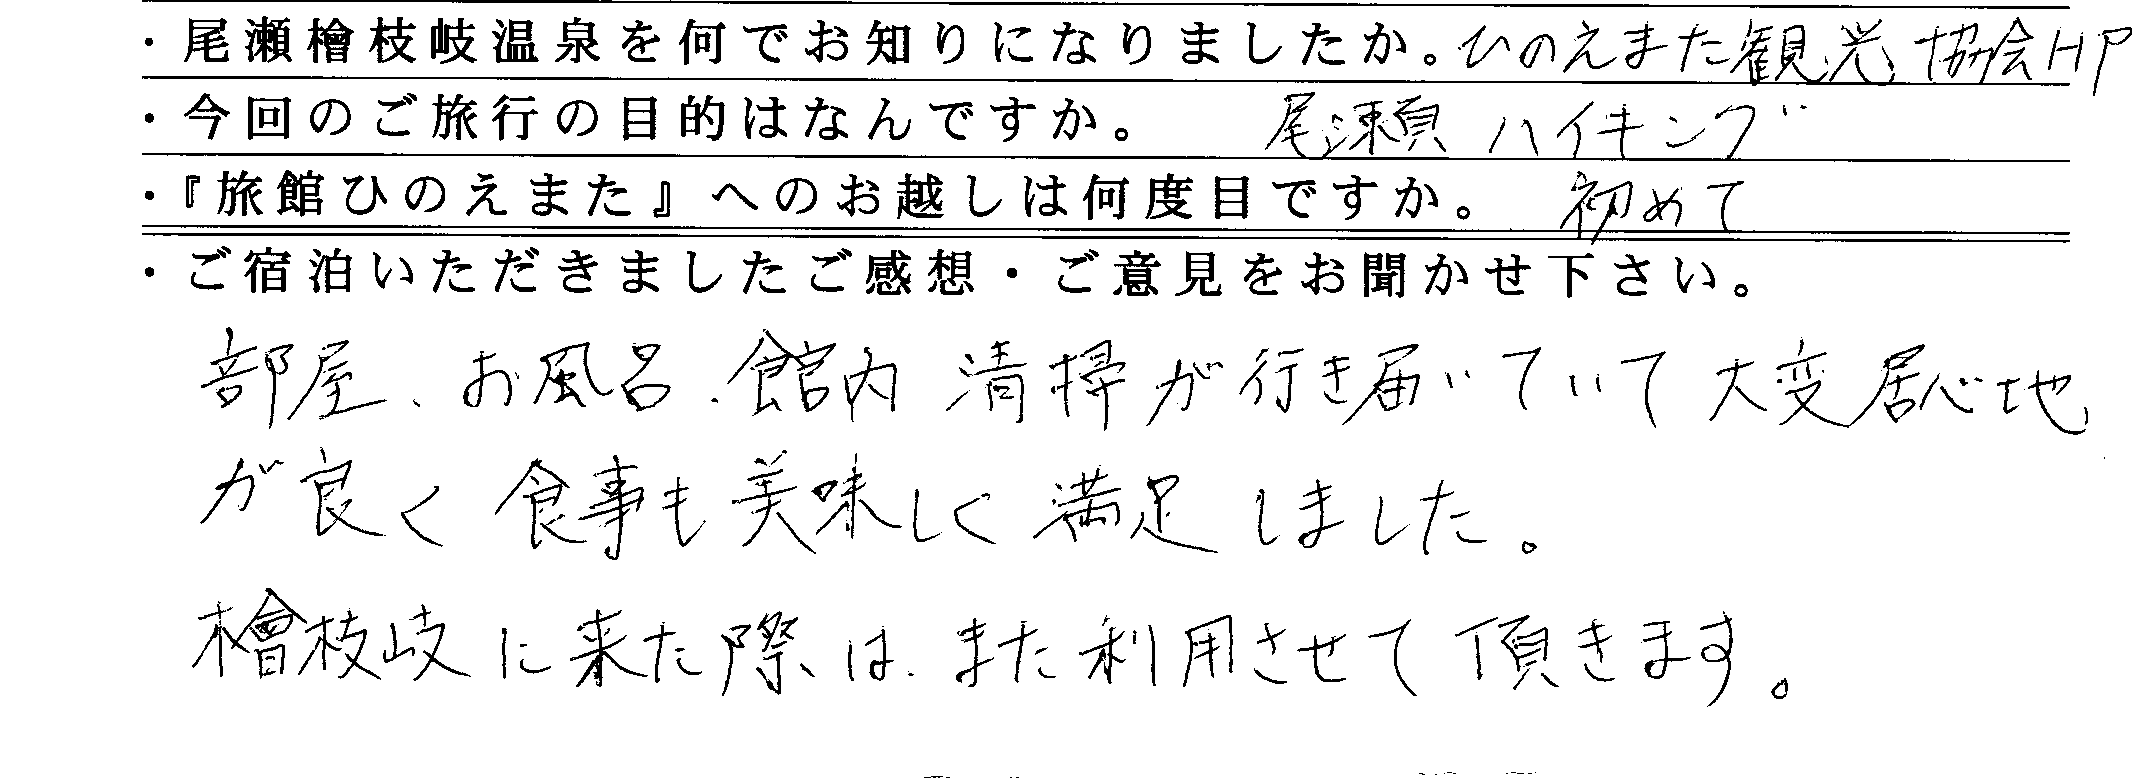 ・尾瀬檜枝岐温泉を何でお知りになりましたか。ひのえまた観光協会HP
・今回のご旅行の目的はなんですか。 尾瀬ハイキング
・『旅館ひのえまた』へのお越しは何度目ですか。 初めて
・ご宿泊いただきましたご感想・ご意見をお聞かせ下さい。
部屋、お風呂、館内 清掃が行き届いていて大変居心地
が良く 食事も美味しく 満足しました。
檜枝岐に来た際は、また利用させて頂きます。